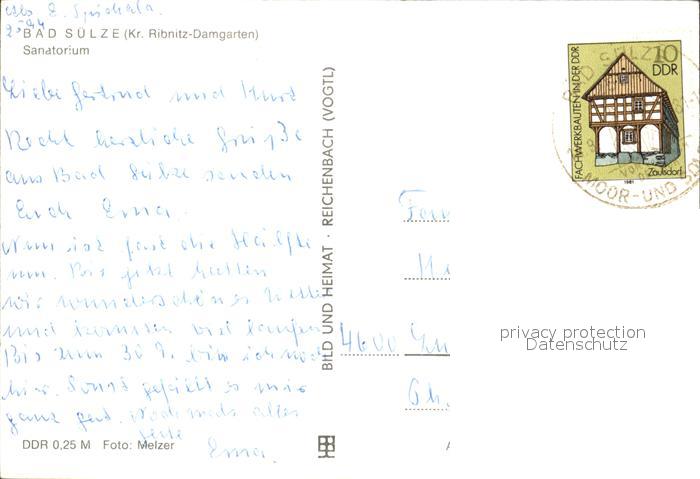 Abs. E.
BAD SÜLZE (Kr. Ribnitz-Damgarten)
Sanatorium
Liebe Gertrud und Kurt
Recht herzliche Grüße
aus Bad Sülze senden
Euch Erna.
Nun ist fast die Hälfte
um. Bis jetzt hatten
wir wunderschönes Wetter
und können viel laufen
Bis zum 30. 9. bin ich noch
hier. Sonst gefällt es mir
ganz gut. Nochmals alles
Gute
Erna.
DDR 0,25 M Foto: Melzer
BILD UND HEIMAT · REICHENBACH (VOGTL)
FACHWERKBAUTEN IN DER DDR
10
DDR
Zaulsdorf
1981
BAD SÜLZE
MOOR- UND
Fam
4600
privacy protection
Datenschutz